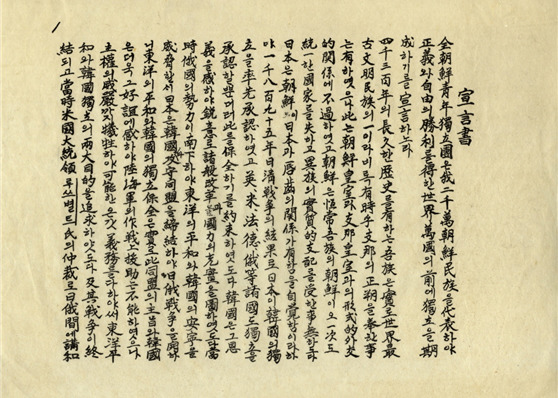 1
宣言書
全朝鮮青年獨立團은我二千萬朝鮮民族을代表하야
正義와自由의勝利를得한世界萬國의前에獨立을期
成하기를宣言하노라
四千三百年의長久한歷史를有하는吾族은實로世界最
古文明民族의一이라비록有時乎支那의正朔을奉한事
는有하엿으나此는朝鮮皇室과支那皇室과의形式的外交
的關係에不過하엿고朝鮮은恒常吾族의朝鮮이오一次도
統一한國家를失하고異族의實質的支配를受한事無하도다
日本은朝鮮이日本과唇齒의關係가有함을自覺함이라하
야一千八百九十五年日清戰爭의結果로日本이韓國의獨
立을率先承認하엿고英米法德俄等諸國도獨立을
承認할뿐더러此를保全하기를約束하엿도다韓國은그恩
義를感하야銳意로諸般改革과國力의充實을圖하엿도다當
時俄國의勢力이南下하야東洋의平和와韓國의安寧을
威脅할새日本은韓國과攻守同盟을締結하야日俄戰爭을開하
니東洋의平和와韓國의獨立保全은實로此同盟의主旨와韓國
은더욱그好誼에感하야陸海軍의作戰上援助는不能하엿스나
主權의威嚴까지犧牲하야可能한온갓義務를다하야써東洋平
和와韓國獨立의兩大目的을追求하얏도다及其戰爭이終
結되고當時米國大統領루쓰벨트氏의仲裁로日俄間에講和